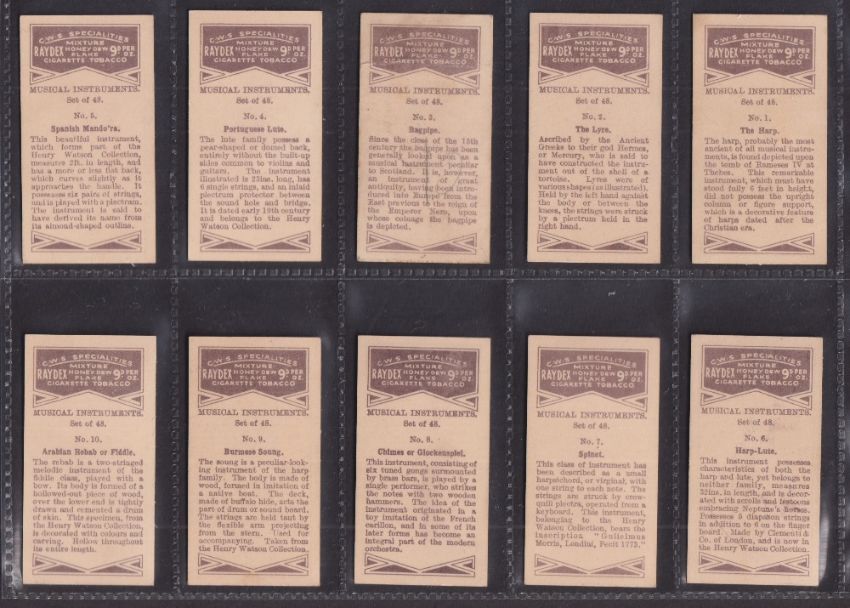 C.W.S SPECIALITIES
RAYDEX MIXTURE HONEYDEW FLAKE 9D PER OZ.
CIGARETTE TOBACCO
MUSICAL INSTRUMENTS.
Set of 48.
No. 5.
Spanish Mandu'ra.
This beautiful instrument,
which forms part of the
Henry Watson Collection,
measures 2ft. in length, and
has a more or less flat back,
which curves slightly as it
approaches the handle. It
possesses six pairs of strings,
and is played with a plectrum.
The instrument is said to
have derived its name from
its almond-shaped outline.
C.W.S SPECIALITIES
RAYDEX MIXTURE HONEYDEW FLAKE 9D PER OZ.
CIGARETTE TOBACCO
MUSICAL INSTRUMENTS.
Set of 48.
No. 4.
Portuguese Lute.
The lute family possess a
pear-shaped or domed back,
entirely without the built-up
sides common to violins and
guitars. The instrument
illustrated is 22ins. long, has
6 single strings, and an inlaid
plectrum protector between
the sound hole and bridge.
It is dated early 19th century
and belongs to the Henry
Watson Collection.
C.W.S SPECIALITIES
RAYDEX MIXTURE HONEYDEW FLAKE 9D PER OZ.
CIGARETTE TOBACCO
MUSICAL INSTRUMENTS.
Set of 48.
No. 3.
Bagpipe.
Since the close of the 15th
century the bagpipe has been
generally looked upon as a
musical instrument peculiar
to Scotland. It is, however,
an instrument of great
antiquity, having been intro-
duced into Europe from the
East previous to the reign of
the Emperor Nero, upon
whose coinage the bagpipe
is depicted.
C.W.S SPECIALITIES
RAYDEX MIXTURE HONEYDEW FLAKE 9D PER OZ.
CIGARETTE TOBACCO
MUSICAL INSTRUMENTS.
Set of 48.
No. 2.
The Lyre.
Ascribed by the Ancient
Greeks to their god Hermes,
or Mercury, who is said to
have constructed the instru-
ment out of the shell of a
tortoise. Lyres were of
various shapes (as illustrated).
Held by the left hand against
the body or between the
knees, the strings were struck
by a plectrum held in the
right hand.
C.W.S SPECIALITIES
RAYDEX MIXTURE HONEYDEW FLAKE 9D PER OZ.
CIGARETTE TOBACCO
MUSICAL INSTRUMENTS.
Set of 48.
No. 1.
The Harp.
The harp, probably the most
ancient of all musical instru-
ments, is found depicted upon
the tomb of Rameses IV at
Thebes. This remarkable
instrument, which must have
stood fully 6 feet in height,
did not possess the upright
column or figure support,
which is a decorative feature
of harps dated after the
Christian era.
C.W.S SPECIALITIES
RAYDEX MIXTURE HONEYDEW FLAKE 9D PER OZ.
CIGARETTE TOBACCO
MUSICAL INSTRUMENTS.
Set of 48.
No. 10.
Arabian Rebab or Fiddle.
The rebab is a two-stringed
melodic instrument of the
fiddle class, played with a
bow. Its body is formed of a
hollowed-out piece of wood,
over the lower end is tightly
drawn and cemented a drum
of skin. This specimen, from
the Henry Watson Collection,
is decorated with colours and
carving. Hollow throughout
its entire length.
C.W.S SPECIALITIES
RAYDEX MIXTURE HONEYDEW FLAKE 9D PER OZ.
CIGARETTE TOBACCO
MUSICAL INSTRUMENTS.
Set of 48.
No. 9.
Burmese Soung.
The soung is a peculiar-look-
ing instrument of the harp
family. The body is made of
wood, formed in imitation of
a native boat. The deck,
made of buffalo hide, acts the
part of drum or sound board.
The strings are held taut by
the flexible arm projecting
from the stern. Used for
accompanying. Taken from
the Henry Watson Collection.
C.W.S SPECIALITIES
RAYDEX MIXTURE HONEYDEW FLAKE 9D PER OZ.
CIGARETTE TOBACCO
MUSICAL INSTRUMENTS.
Set of 48.
No. 8.
Chimes or Glockenspiel.
This instrument, consisting of
six tuned gongs surmounted
by brass bars, is played by a
single performer, who strikes
the notes with two wooden
hammers. The idea of the
instrument originated in a
toy imitation of the French
carillon, and in some of its
later forms has become an
integral part of the modern
orchestra.
C.W.S SPECIALITIES
RAYDEX MIXTURE HONEYDEW FLAKE 9D PER OZ.
CIGARETTE TOBACCO
MUSICAL INSTRUMENTS.
Set of 48.
No. 7.
Spinet.
This class of instrument has
been described as a small
harpsichord, or virginal, with
one string to each note. The
strings are struck by crow-
quill plectra, operated from a
keyboard. This instrument,
belonging to the Henry
Watson Collection, bears the
inscription "Gulielmus
Morris, Londini, Fecit 1773."
C.W.S SPECIALITIES
RAYDEX MIXTURE HONEYDEW FLAKE 9D PER OZ.
CIGARETTE TOBACCO
MUSICAL INSTRUMENTS.
Set of 48.
No. 6.
Harp-Lute.
This instrument possesses
characteristics of both the
harp and lute, yet belongs to
neither family, measures
32ins, in length, and is decor-
ated with scrolls and festoons
embracing Neptune's horses.
Possesses 5 diapason strings
in addition to 6 on the finger
board. Made by Clementi &
Co. of London, and is now in
the Henry Watson Collection.